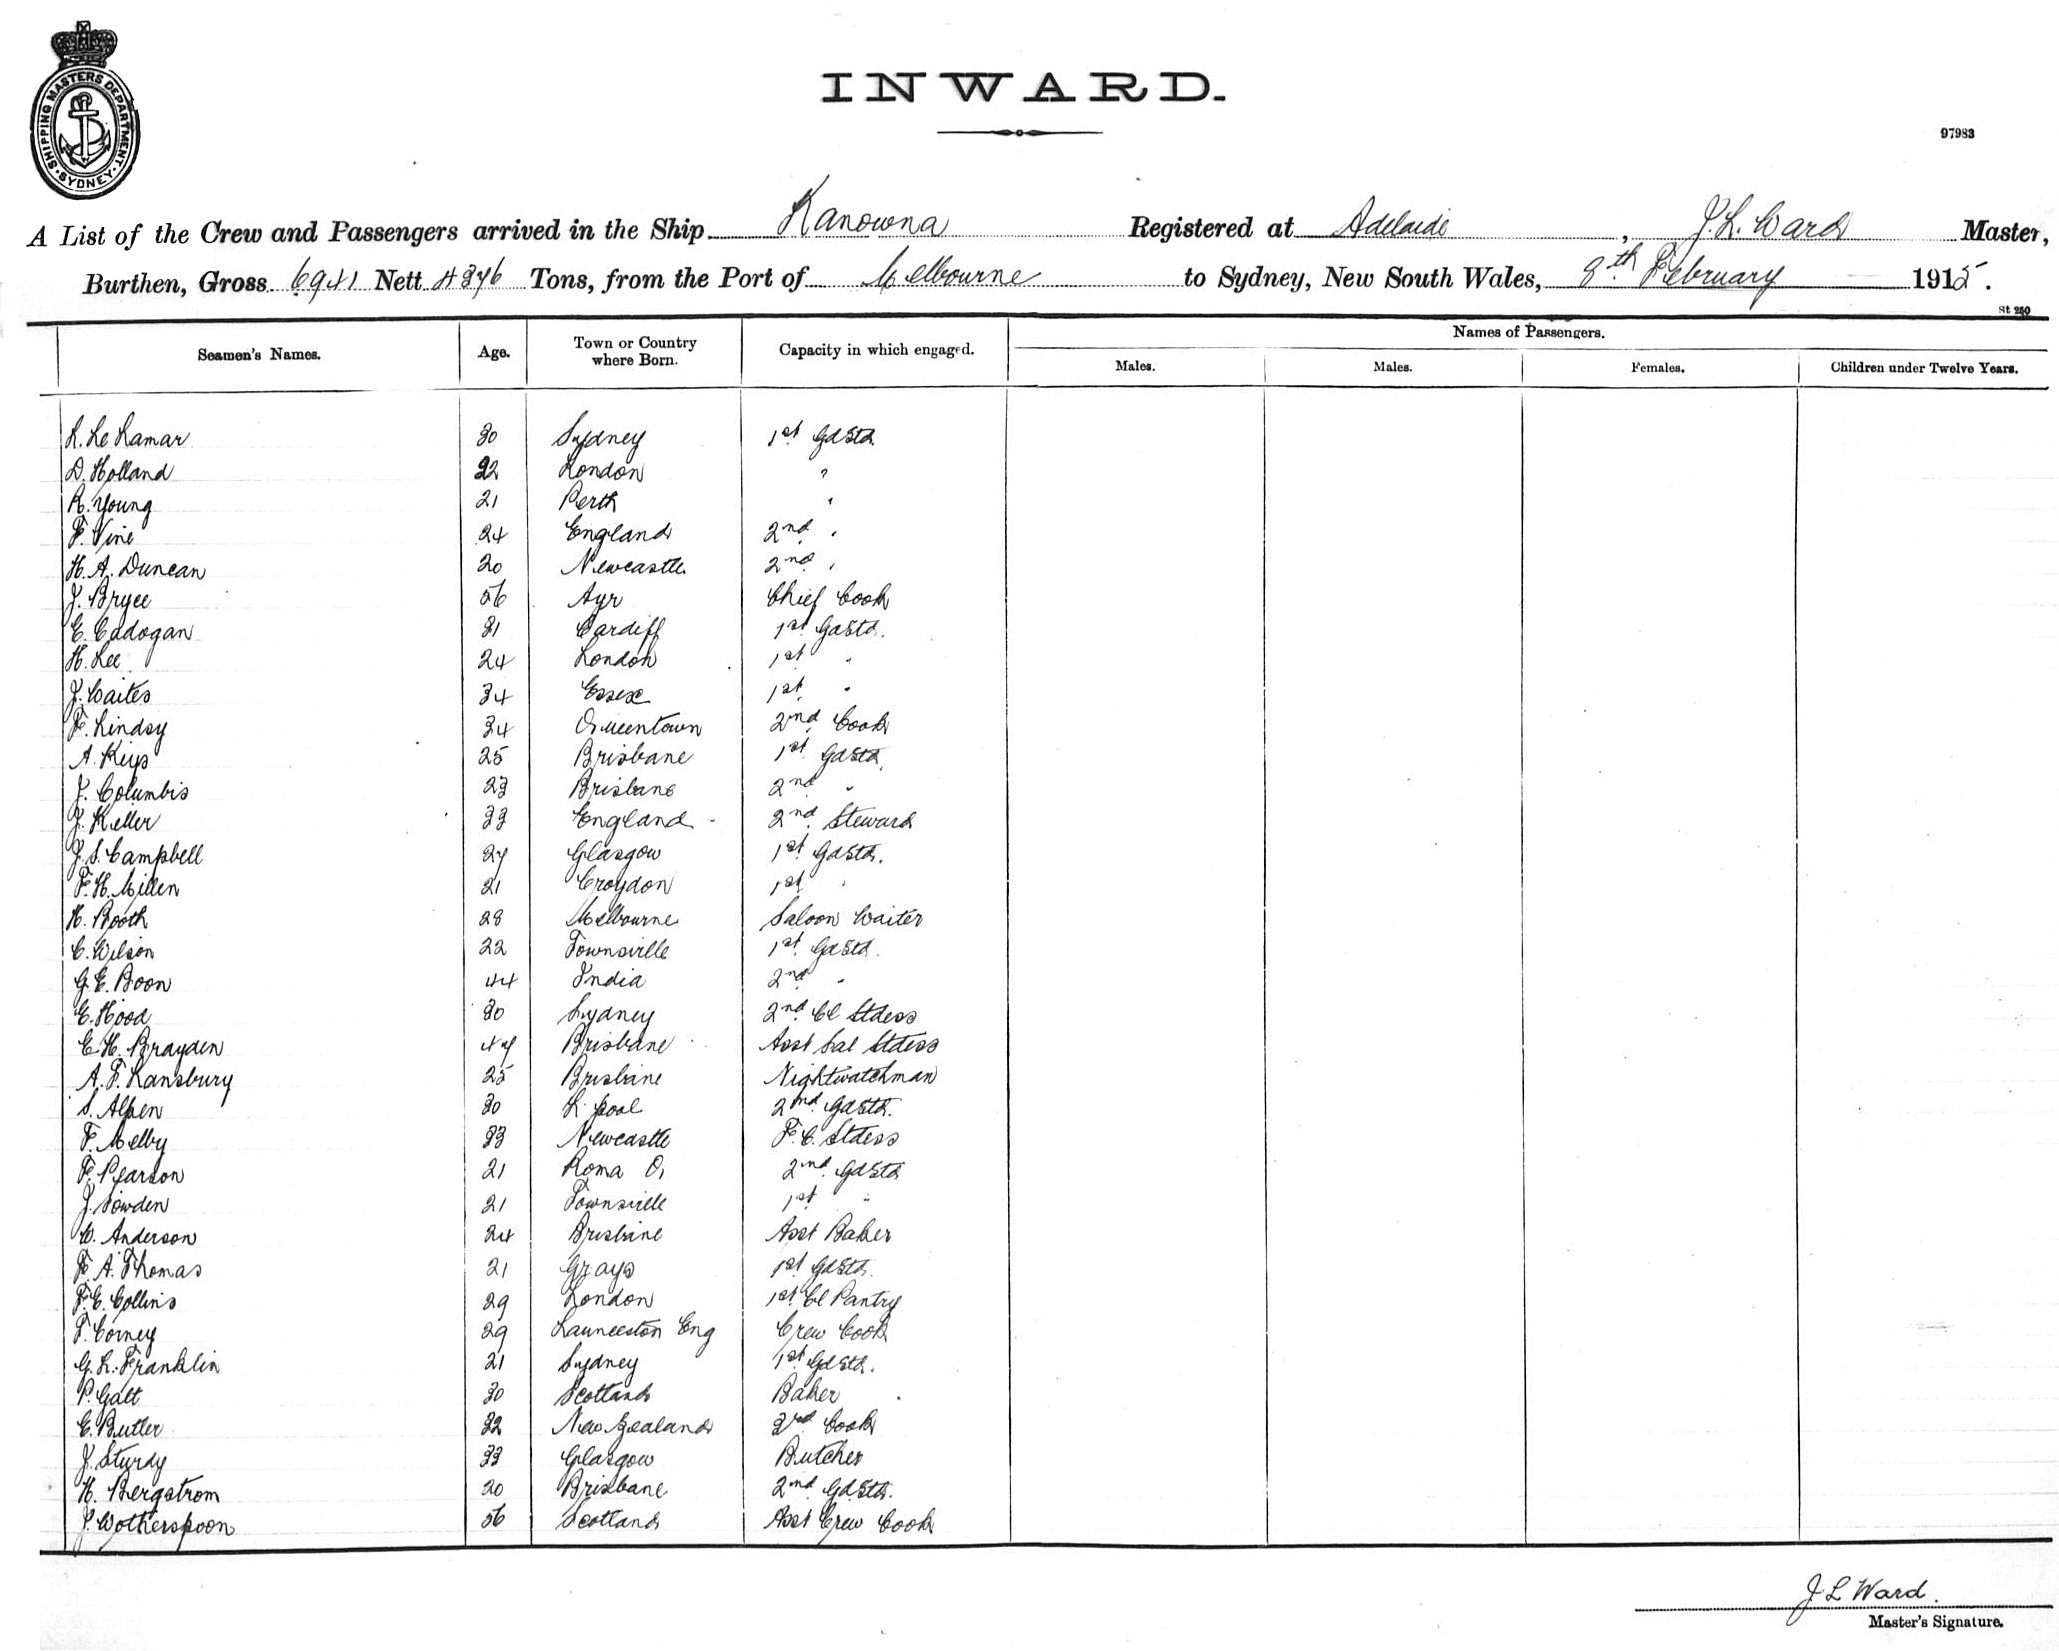 SHIPPING MASTERS DEPARTMENT. SYDNEY.
INWARD.
97983
A List of the Crew and Passengers arrived in the Ship Kanowna Registered at Adelaide, J. L. Ward Master,
Burthen, Gross 6941 Nett Tons, from the Port of Melbourne to Sydney, New South Wales, 8th February 1915.
St 250
Seamen's Names. Age. Town or Country where Born. Capacity in which engaged. Names of Passengers.
Males. Males. Females. Children under Twelve Years.
L. Le Lamar 30 Sydney 1st GdStd
D. Holland 22 London "
R. Young 21 Perth "
F. Vine 24 England 2nd "
H. A. Duncan 20 Newcastle 2nd "
J. Bryce 56 Ayr Chief Cook
E. Cadogan 31 Cardiff 1st GdStd.
H. Lee 24 London 1st "
J. Waites 34 Essex 1st "
F. Lindsy 34 Queentown 2nd Cook
A. Keys 25 Brisbane 1st GdStd
J. Columbis 23 Brisbane 2nd "
J. Keller 33 England 2nd Steward
J. S. Campbell 27 Glasgow 1st GdStd.
F. H. Millen 21 Croydon 1st "
H. Booth 28 Melbourne Saloon Waiter
C. Wilson 22 Townsville 1st GdStd.
G. E. Boon 44 India 2nd "
E. Hood 30 Sydney 2nd Cl Stdess
E. H. Brayden 47 Brisbane Asst Sal Stdess
A. F. Lansbury 25 Brisbane Nightwatchman
S. Alpen 30 L.pool 2nd GdStd.
F. Melby 33 Newcastle F. C. Stdess
F. Pearson 21 Roma Q. 2nd GdStd
J. Sowden 21 Townsville 1st "
W. Anderson 24 Brisbane Asst Baker
F. A. Thomas 21 Grays 1st GdStd.
F. E. Collins 29 London 1st Cl Pantry
T. Corney 29 Launceston Eng Crew Cook
G. L. Franklin 21 Sydney 1st GdStd.
P. Galt 30 Scotland Baker
E. Butler 32 New Zealand 3rd Cook
J. Sturdy 33 Glasgow Butcher
H. Bergstrom 20 Brisbane 2nd GdStd.
J. Wotherspoon 56 Scotland Asst Crew Cook
J L Ward.
Master's Signature.